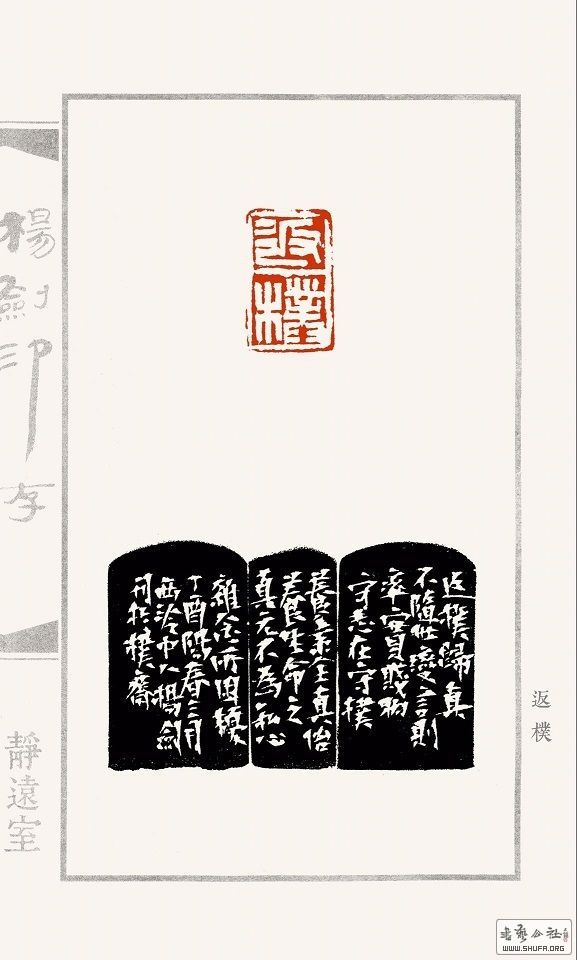 返樸
返樸歸真
不隨世變之則
安貧賤
守志在守樸
養素全真怡
養生命之
真元不為私心
雜念所困擾
丁酉陽春三月
西泠中人楊劍
刊於樸齋
返樸
楊劍印存
靜遠室
書藝公社
WWW.SHUFA.ORG